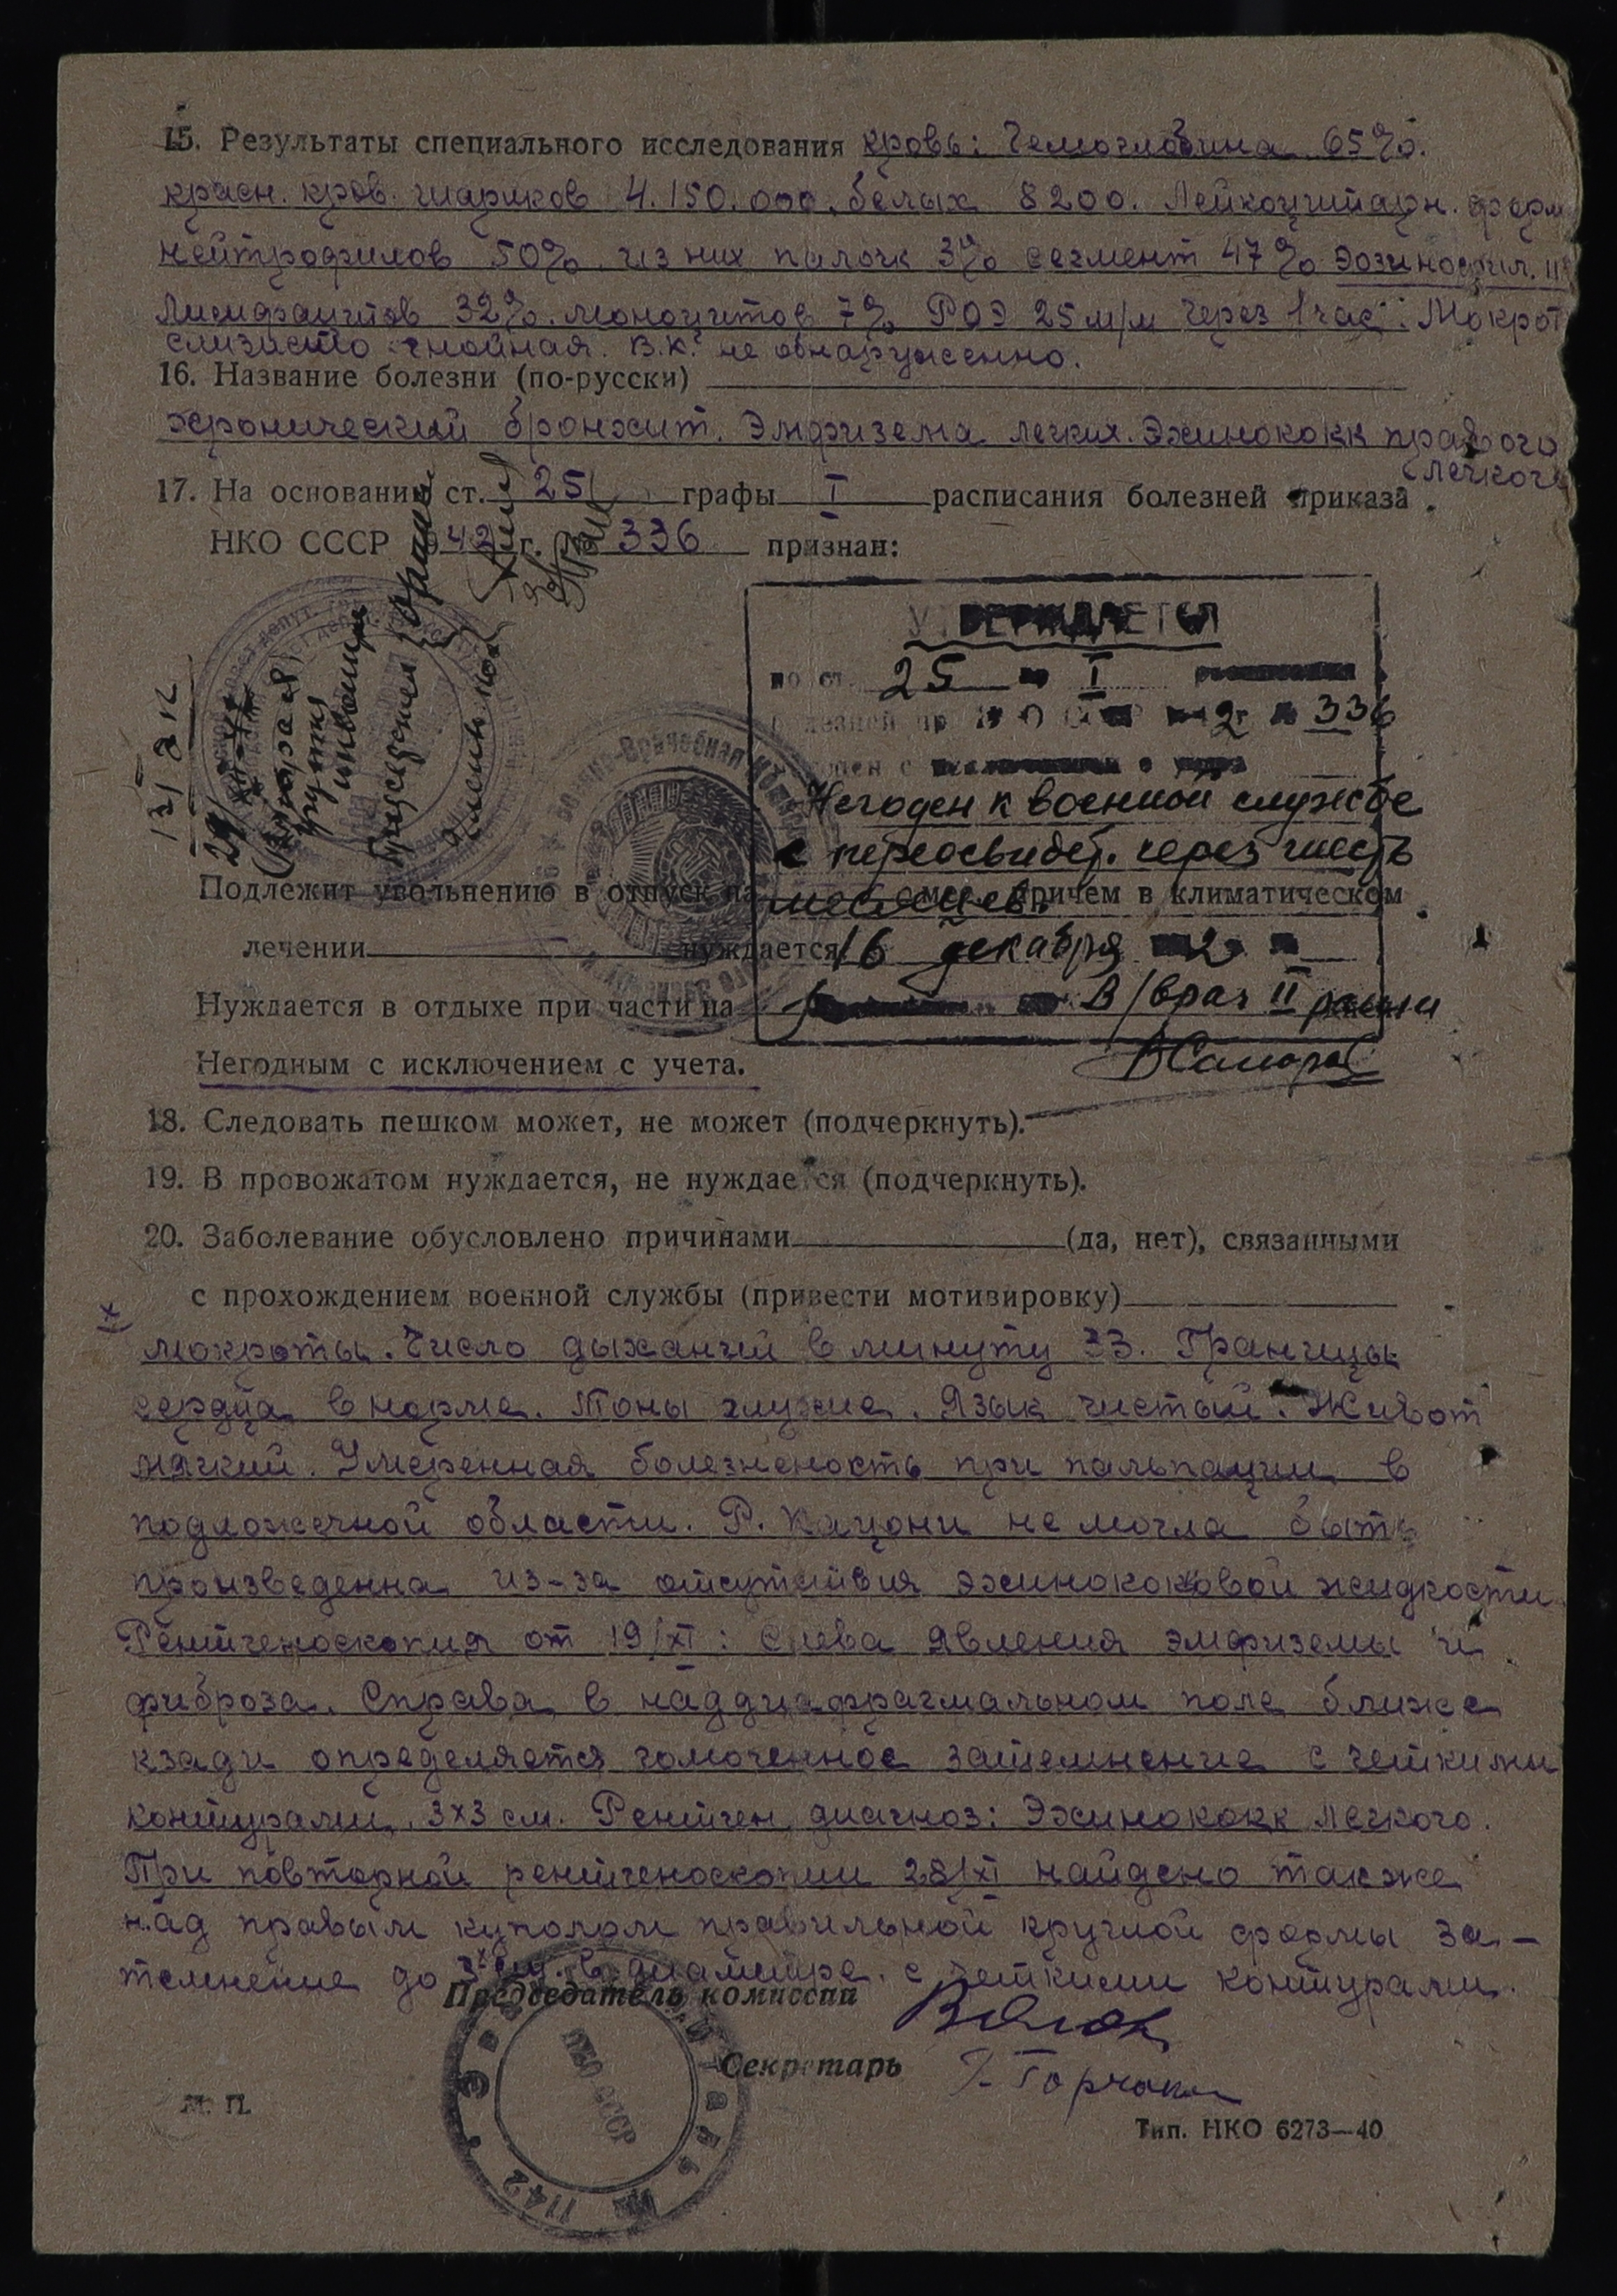 15. Результаты специального исследования кровь: Гемоглобина 65%.
красн. кров. шариков 4.150.000. белых 8200. Лейкоцитарн. форм
нейтрофилов 50% из них палочк 3% сегмент 47% Эозинофил. 11
Лимфоцитов 32%. моноцитов 7% РОЭ 25 м/м через 1 час. Мокрот
слизисто гнойная. В.К. не обнаруженно.
16. Название болезни (по-русски)
хронический бронхит. Эмфизема легких. Эхинококк правого
легкого
17. На основании ст. 25 графы I расписания болезней приказа
НКО СССР 1942 г. № 336 признан:
УТВЕРЖДАЕТСЯ
по ст. 25 I
болезней пр НКО СССР 2 336
Негоден к военной службе
с переосвидет. через шесть
месяцев.
Подлежит увольнению в отпуск на причем в климатическом
лечении нуждается
16 декабря 2
Нуждается в отдыхе при части на
В/врач II ранга
Негодным с исключением с учета.
18. Следовать пешком может, не может (подчеркнуть).
19. В провожатом нуждается, не нуждается (подчеркнуть).
20. Заболевание обусловлено причинами (да, нет), связанными
с прохождением военной службы (привести мотивировку)
х
мокроты. Число дыханий в минуту 23. Границы
сердца в норме. Тоны глухие. Язык чистый. Живот
мягкий. Умеренная болезненость при пальпации в
подложечной области. Р. Кацони не могла быть
произведенна из-за отсутствия эхинококовой жидкости
Рентгеноскопия от 19/XI: Слева явления эмфиземы и
фиброза. Справа в наддиафрагмальном поле ближе
кзади определяется гомогенное затемнение с четкими
контурами 3х3 см. Рентген диагноз: Эхинококк легкого.
При повторной рентгеноскопии 28/XI найдено также
над правым куполом правильной круглой формы за-
темнение до 3х см. в диаметре с четкими контурами.
Председатель комиссии
Секретарь
НКО СССР
1142
М. П.
Тип. НКО 6273—40